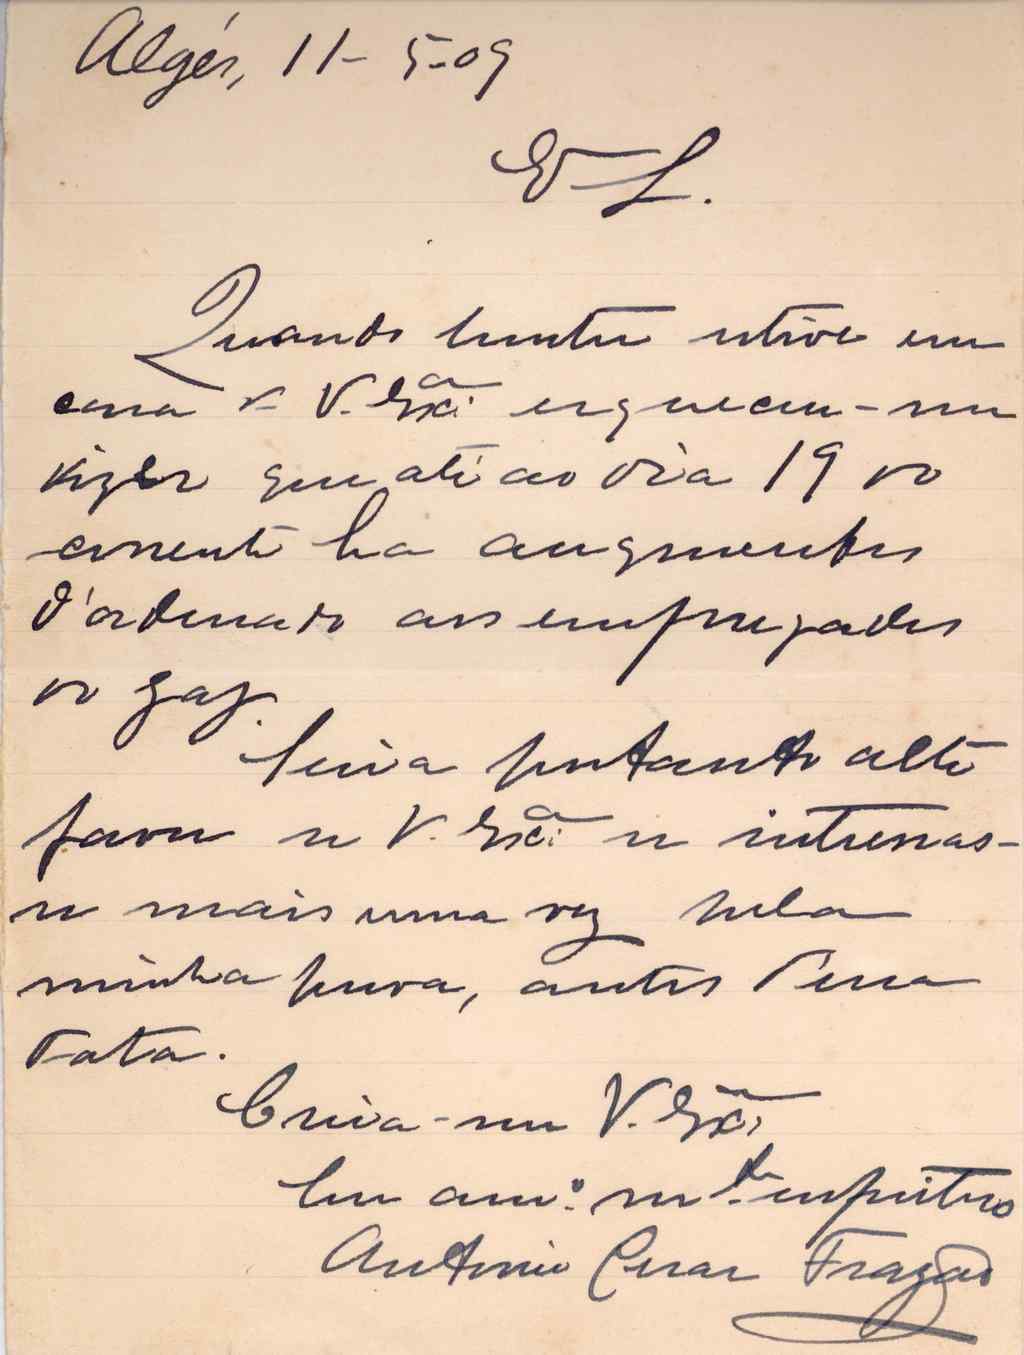 Algés, 11-5-09
Quando hontem estive em
casa de V. Ex.cia esqueceu-me
dizer que até ao dia 19 do
corrente ha augmentos
d'ordenado aos empregados
do gaz.
Seria portanto alto
favor se V. Ex.cia se interessas-
se mais uma vez pela
minha pessoa, antes d'essa
data.
Creia-me V. Ex.cia
Seu am.º m.to
Antonio Cesar Frazão